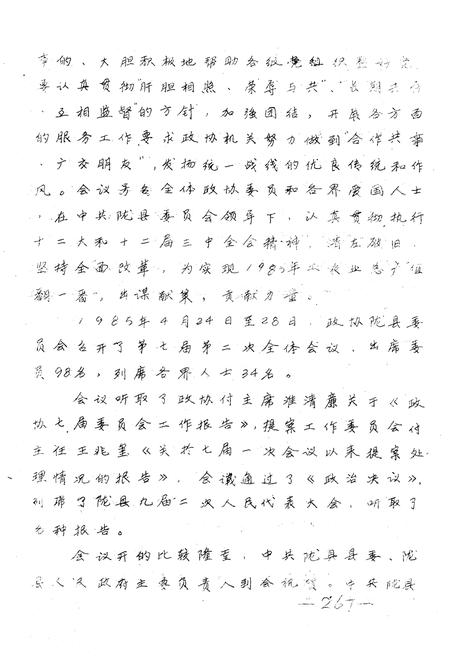 事的、大胆积极地帮助各级党组织整好党。
要认真贯彻"肝胆相照、荣辱与共"、"长期共存
、互相监督"的方针，加强团结，开展各方面
的服务工作，要求政协机关努力做到"合作共事
、广交朋友"，发扬统一战线的优良传统和作
风。会议号召全体政协委员和各界爱国人士
，在中共陇县委员会领导下，认真贯彻执行
十二大和十二届三中全会精神，清左破旧，
坚持全面改革，为实现1985年工农业总产值
翻一番，出谋献策，贡献力量。
1985年4月24日至28日，政协陇县委
员会召开了第七届第二次全体会议，出席委
员98名，列席各界人士34名。
会议听取了政协付主席淮清廉关于《政
协七届委员会工作报告》，提案工作委员会付
主任王兆奎《关于七届一次会议以来提案处
理情况的报告》，会议通过了《政治决议》，
列席了陇县九届二次人民代表大会，听取了
各种报告。
会议开的比较隆重，中共陇县县委、陇
县人民政府主要负责人到会祝贺。中共陇县
—267—